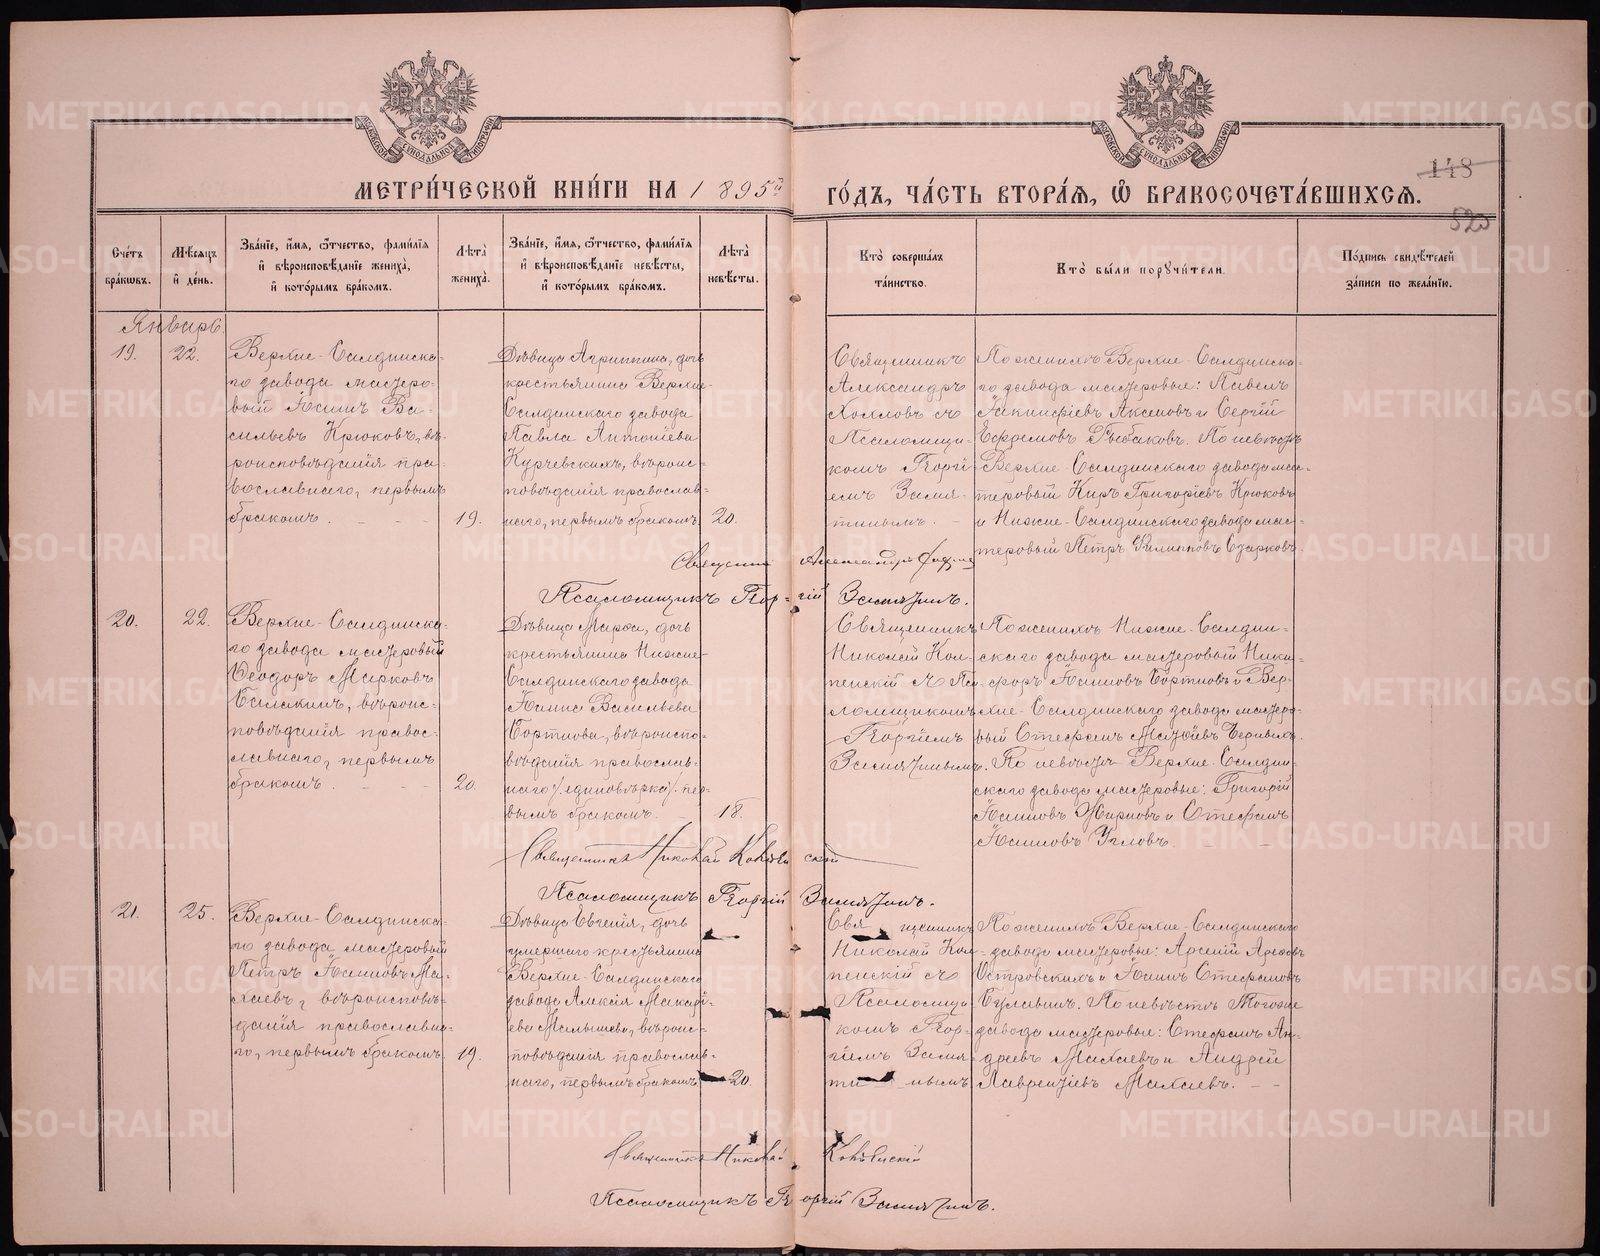 МЕТРИ́ЧЕСКОЙ КНИ́ГИ НА 1895й ГО́ДЪ, ЧА́СТЬ ВТОРА́Я, Ѡ БРАКОСОЧЕТА́ВШИХСЯ.
148
523
Сче́тъ бра́ковъ.
Мѣ́сяцъ и҆ де́нь.
Зва́ніе, и҆́мя, ѻ҆́тчество, фами́лія и҆ вѣроисповѣ́даніе жениха̀, и҆ кото́рымъ бра́комъ.
Лѣ́та жениха̀.
Зва́ніе, и҆́мя, ѻ҆́тчество, фами́лія и҆ вѣроисповѣ́даніе невѣ́сты, и҆ кото́рымъ бра́комъ.
Лѣ́та невѣ́сты.
Кто̀ соверша́лъ та́инство.
Кто̀ бы́ли поручи́тели.
По́дпись свидѣ́телей за́писи по жела́нію.
Январь.
19.
22.
Верхне-Салдинска-
го завода мастеро-
вый Іоаннъ Ва-
сильевъ Крюковъ, вѣ-
роисповѣданія пра-
вославнаго, первымъ
бракомъ.
19.
Дѣвица Агриппина, дочь
крестьянина Верхне-
Салдинскаго завода
Павла Антоніева
Курчевскихъ, вѣроис-
повѣданія православ-
наго, первымъ бракомъ.
20.
Священникъ
Александръ
Хохловъ съ
Псаломщи-
комъ Георгі-
емъ Замя-
тинымъ.
По женихѣ Верхне-Салдинска-
го завода мастеровые: Павелъ
Іакинфіевъ Аксеновъ и Сергій
Ефремовъ Рыбаковъ. По невѣстѣ
Верхне-Салдинскаго завода мас-
теровый Киръ Григоріевъ Крюковъ
и Нижне-Салдинскаго завода мас-
теровый Петръ Филипповъ
Священникъ Александръ
Псаломщикъ Георгій Замятинъ.
20.
22.
Верхне-Салдинска-
го завода мастеровый
Ѳеодоръ Марковъ
Балакинъ, вѣроис-
повѣданія правос-
лавнаго, первымъ
бракомъ.
20.
Дѣвица Марѳа, дочь
крестьянина Нижне-
Салдинскаго завода
Іоанна Васильева
Бортнова, вѣроиспо-
вѣданія православ-
наго /единовѣрка/. пер-
вымъ бракомъ.
18.
Священникъ
Николай Кон-
пенскій съ Пса-
ломщикомъ
Георгіемъ
Замятинымъ.
По женихѣ Нижне-Салдин-
скаго завода мастеровый Ники-
форъ Іоанновъ Бортновъ и Вер-
хне-Салдинскаго завода мастеро-
вый Стефанъ Матѳіевъ
По невѣстѣ Верхне-Салдин-
скаго завода мастеровые: Григорій
Іоанновъ Жирновъ и Стефанъ
Іоанновъ Угловъ.
Священникъ Николай
Псаломщикъ Георгій Замятинъ.
21.
25.
Верхне-Салдинска-
го завода мастеровый
Петръ Іоанновъ Ма-
хаевъ, вѣроисповѣ-
данія православна-
го, первымъ бракомъ.
19.
Дѣвица Евгенія, дочь
умершаго крестьянина
Верхне-Салдинскаго
завода Алексія Макарі-
ева Малышева, вѣроис-
повѣданія православ-
наго, первымъ бракомъ.
20.
Священникъ
Николай Кон-
пенскій съ
Псаломщи-
комъ Геор-
гіемъ Замя-
тинымъ
По женихѣ Верхне-Салдинскаго
завода мастеровые: Арсеній
Островскихъ и Іоаннъ Стефановъ
По невѣстѣ тогоже
завода мастеровые: Стефанъ Ан-
дреевъ Махаевъ и Андрей
Лаврентіевъ Махаевъ.
Священникъ Николай
Псаломщикъ Георгій Замятинъ.
METRIKI.GASO-URAL.RU